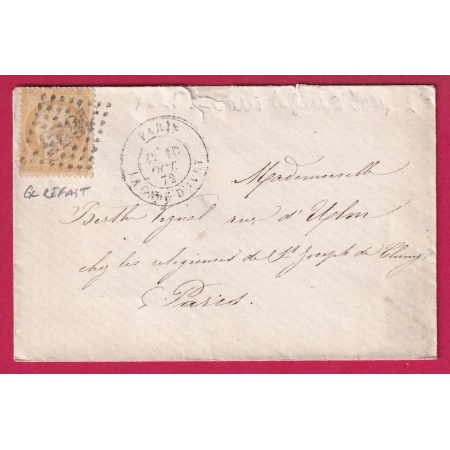 PARIS
OCT.
72
LA GARE D'IVRY
GC REFAIT
Mademoiselle
Berthe rue d'Ulm
chez les religieuses de St Joseph de Cluny
Paris.